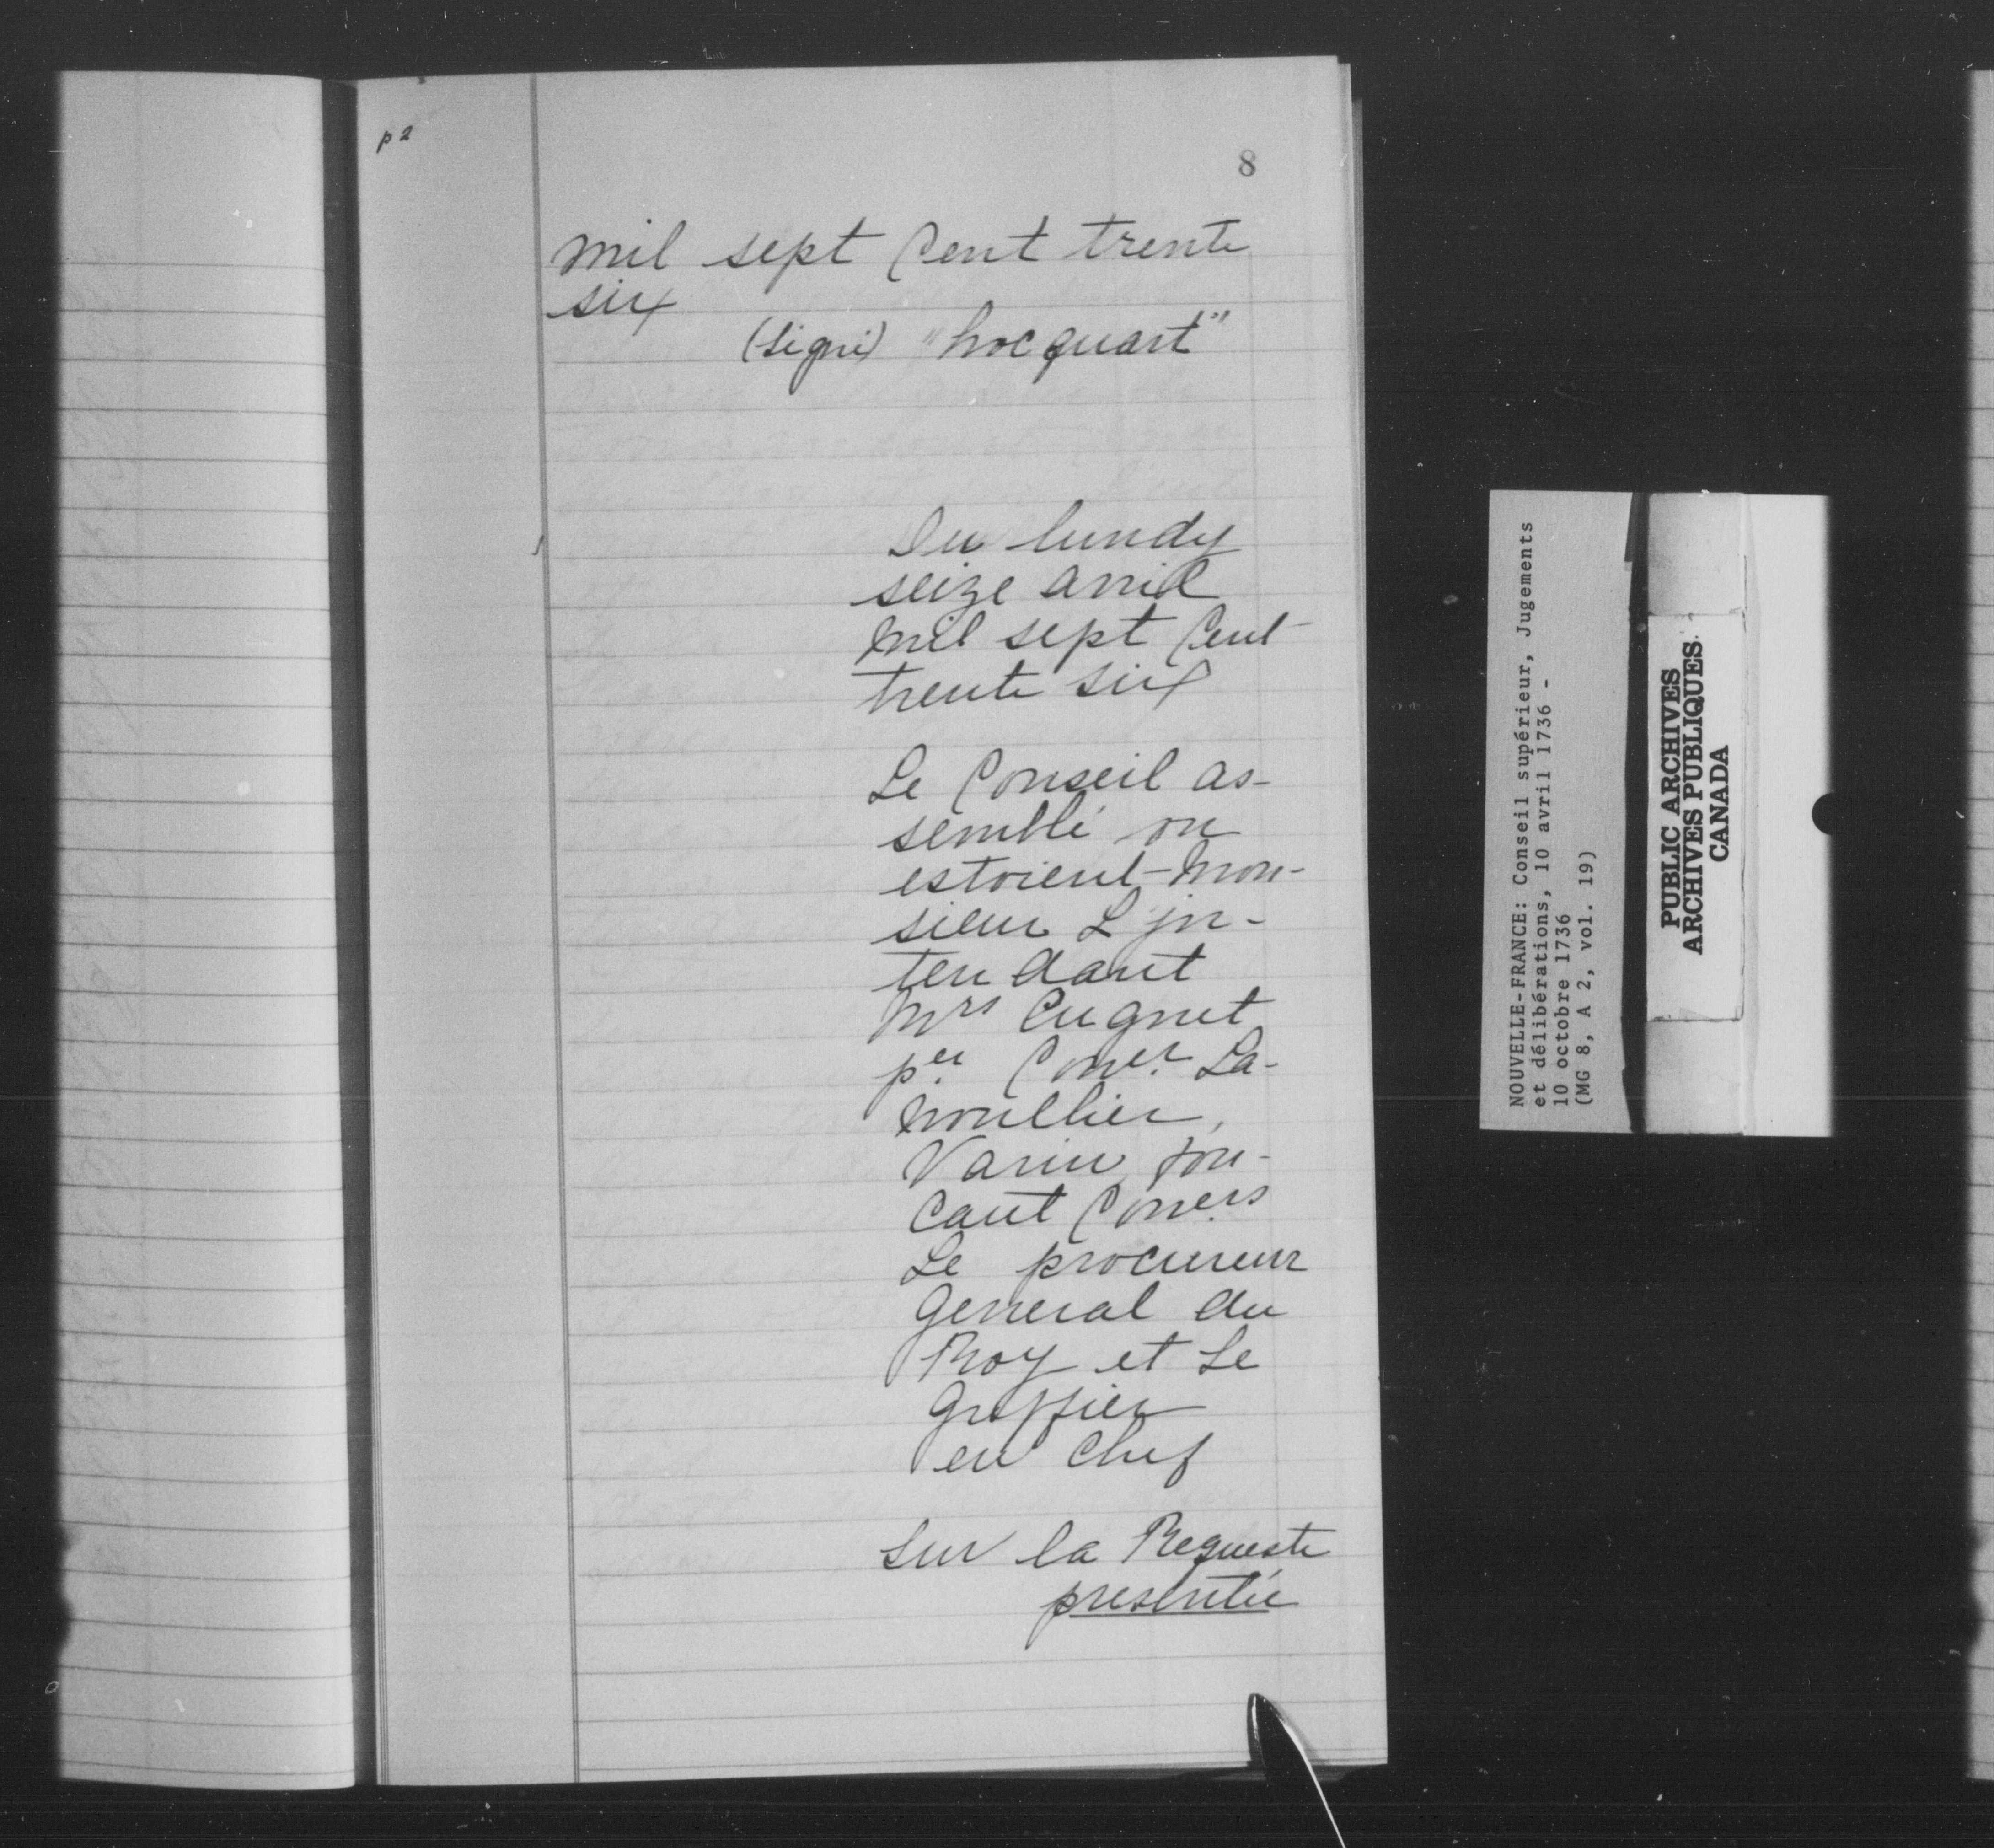 p 2
8
mil sept Cent trente
six
(signé) "hocquart"
Du lundy
seize avril
mil sept Cent
trente six
Le Conseil as-
semblé ou
estoient Mon-
sieur L'jn-
tendant
Mrs Cugnet
per Coner La-
noullier,
Varin, fou-
cault Coners
Le procureur
General du
Roy et Le
Greffier
en Chef
Sur la Requeste
presentée
NOUVELLE-FRANCE: Conseil supérieur, Jugements
et délibérations, 10 avril 1736 -
10 octobre 1736
(MG 8, A 2, vol. 19)
PUBLIC ARCHIVES
ARCHIVES PUBLIQUES
CANADA